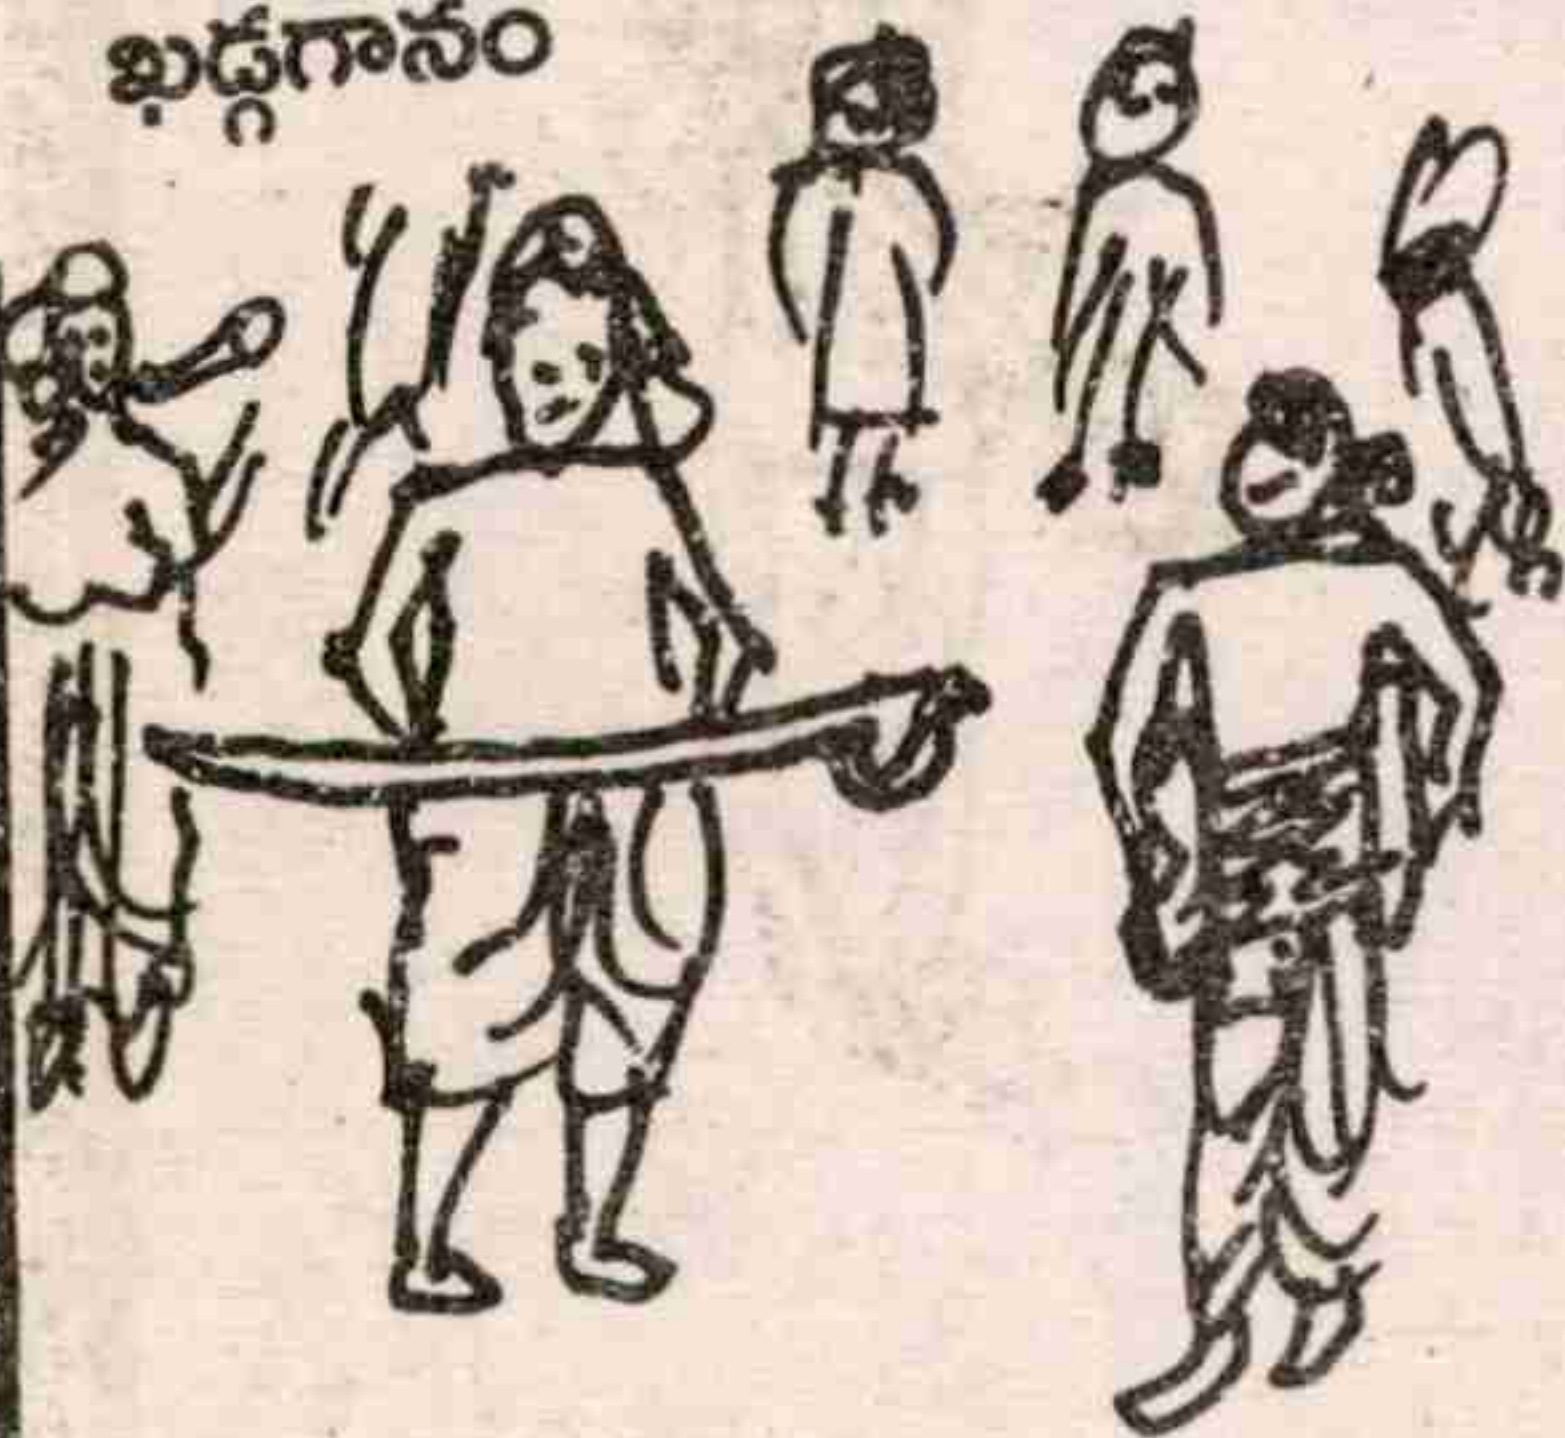 ఖడ్గగానం